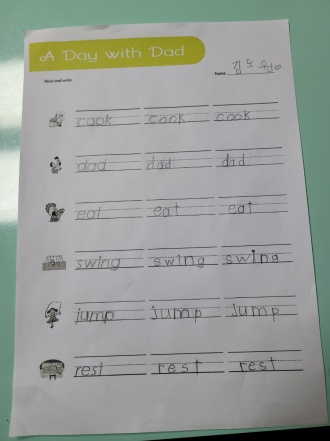 A Day with Dad
Read and write.
Name 김도원
cook cook cook
dad dad dad
eat eat eat
swing swing swing
jump jump jump
rest rest rest